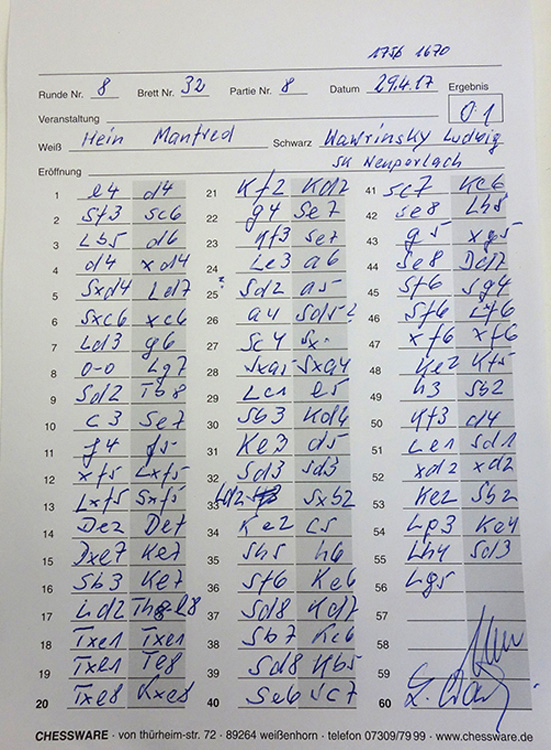 1756 1670
Runde Nr. 8 Brett Nr. 32 Partie Nr. 8 Datum 29.4.17 Ergebnis
0 1
Veranstaltung
Weiß Hein Manfred Schwarz Wawrinsky Ludwig
SK Neuperlach
Eröffnung
1 e4 d4 21 Kf2 Kd7 41 Sc7 Kc6
2 Sf3 Sc6 22 g4 Se7 42 Se8 Lh8
3 Lb5 d6 23 Kf3 Se7 43 g5 xg5
4 d4 xd4 24 Le3 a6 44 Se8
5 Sxd4 Ld7 25 Sd2 a5 45 Sf6 Sg4
6 Sxc6 xc6 26 a4 Sd5 46 Sf6 Lf6
7 Ld3 g6 27 Sc4 Sx 47 xf6 xf6
8 0-0 Lg7 28 Sxa5 Sxa4 48 Ke2 Kf5
9 Sd2 Tb8 29 Lc1 e5 49 h3 Sb2
10 c3 Se7 30 Sb3 Kd6 50 Kf3 d4
11 f4 f5 31 Ke3 d5 51 Le1 Sd1
12 xf5 Lxf5 32 Sd3 Sd3 52 xd2 xd2
13 Lxf5 Sxf5 33 Ld2 Sxb2 53 Ke2 Sb2
14 De2 De7 34 Ke2 c5 54 Lp3 Ke4
15 Dxe7 Ke7 35 Sh5 h6 55 Lh4 Sd3
16 Sb3 Ke7 36 Sf6 Ke6 56 Lg5
17 Ld2 37 Sd8 Kd7 57
18 Txe1 Txe1 38 Sb7 Kc6 58
19 Txe1 Te8 39 Sd8 Kb5 59
20 Txe8 Kxe8 40 Se6 Sc7 60
CHESSWARE · von thürheim-str. 72 · 89264 weißenhorn · telefon 07309/79 99 · www.chessware.de